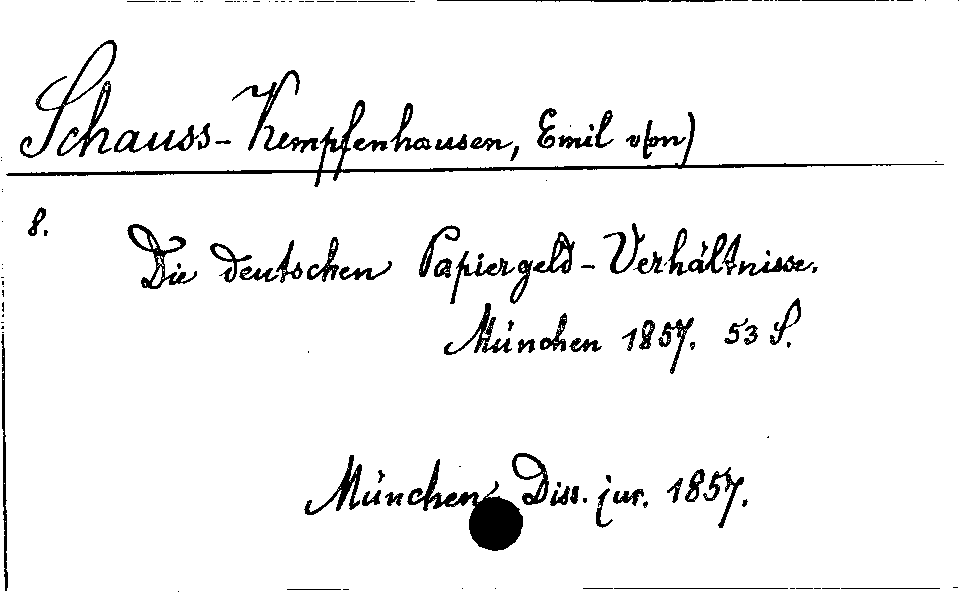 Schauss-Kempfenhausen, Emil v(on)
8.
Die deutschen Papiergeld-Verhältnisse.
München 1857. 53 S.
München, Diss. jur. 1857.